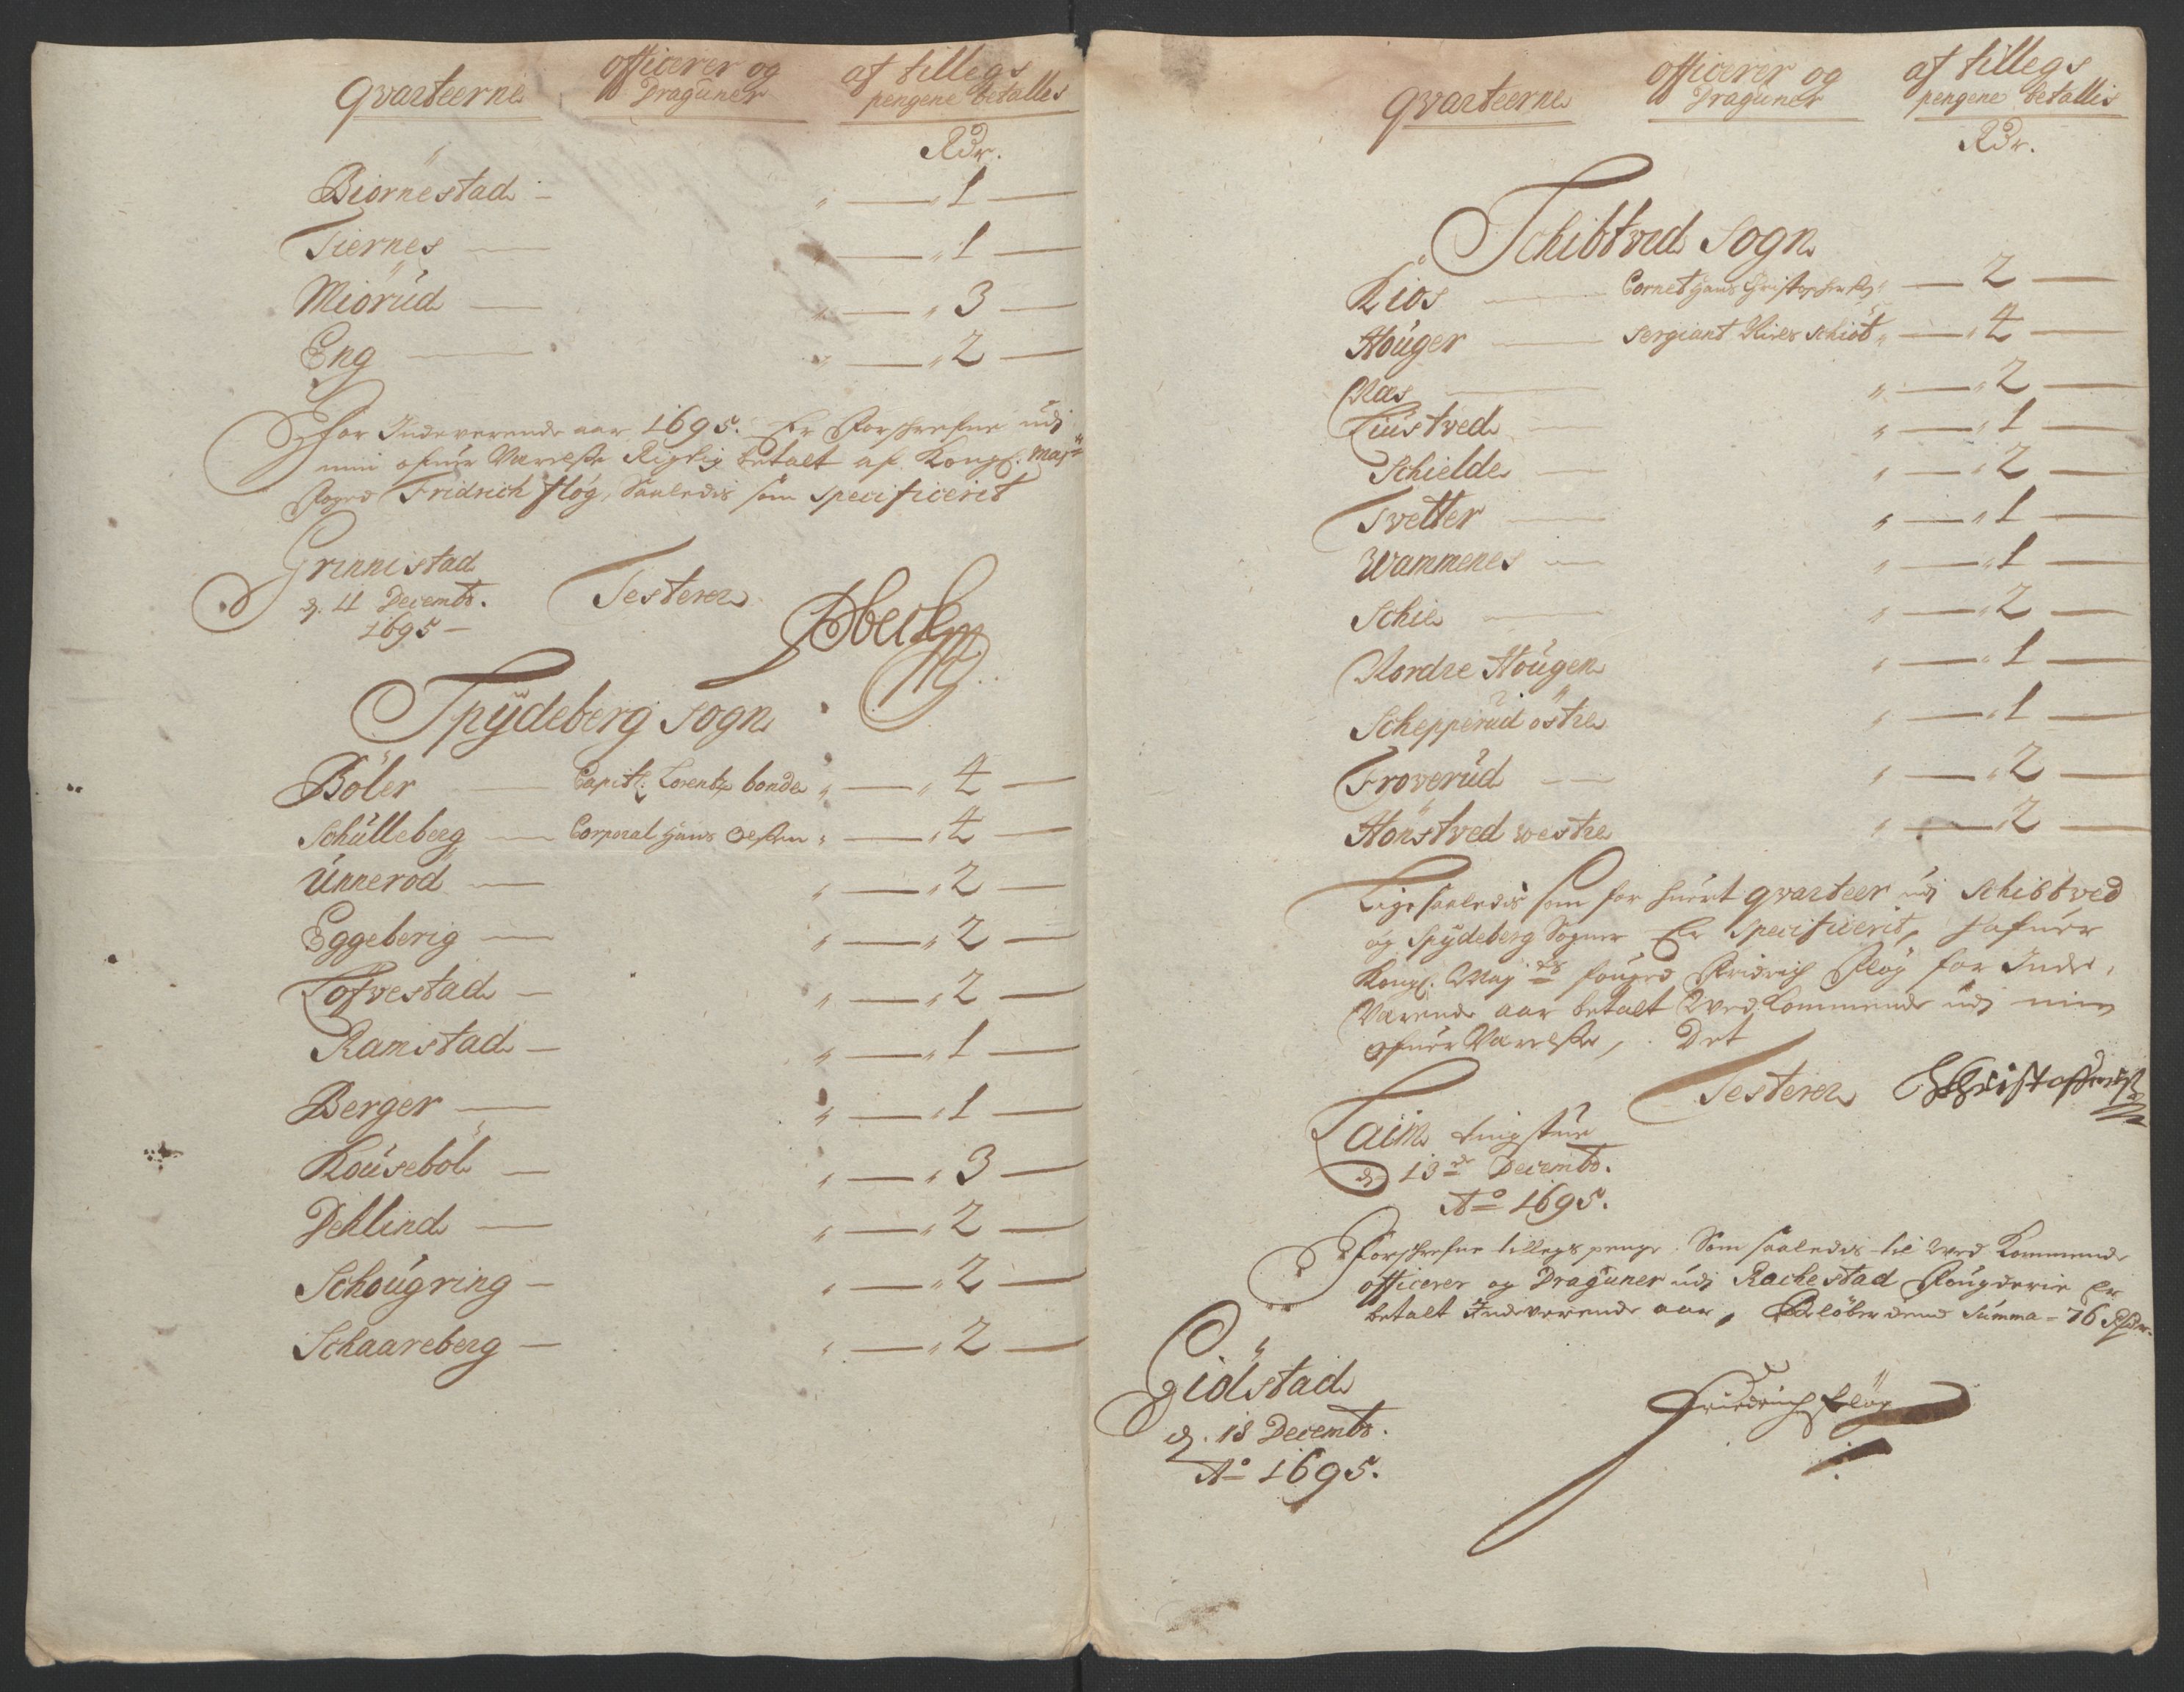 qvarteerne officerer og Draguner af tillegs pengene betalles
Rdr.
Biörnestad — " — " 1 —
Tiernes — " — " 1 —
Miörud — " — " 3 —
Eng — " — " 2 —
For Indeverende aar 1695. Er Forschrefne udj
min ofuer Værelsse Rigtig betalt af Kongl. Maytz
Foged Fridrich fløg, Saaledis som specificerit
Grinnestad
d. 11 Decembr.
1695 —
Testerer
Spÿdeberg Sogn
Böler — Capitl. Lorentz bonde " — " 4 —
Schulleberg — Corporal Hans Olsen " — " 4 —
Unneröd — " — " 2 —
Eggeberig — " — " 2 —
Lofvestad — " — " 2 —
Ramstad — " — " 1 —
Berger — " — " 1 —
Kouseböl — " — " 3 —
Dehlind — " — " 2 —
Schougring — " — " 2 —
Schaareberg — " — " 2 —
qvarteerne officerer og Draguner af tillegs pengene betallis
Rdr.
Schibtved Sogn
Kiös — Cornet Hans " — 2 —
Houger — Sergiant Niels Schiöt " — " 4 —
Næs — " — " 2 —
Liustved — " — " 1 —
Schielde — " — " 2 —
Tvetter — " — " 1 —
Wammenes — " — " 1 —
Schie — " — " 2 —
Nordre Hougen " — " 1 —
Schepperud östre " — " 1 —
Froverud — " — " 2 —
Hönstved westre " — " 2 —
Lige saaledis som for huert qvarteer udj Schibtved
og Spÿdeberg Sogner Er Specificerit, hafuer
Kongl. Maytz fouged Fridrich Fløg for Inde-
Værende aar betalt Vedkommende udj min
ofuer Værelsse, Det
Testerer
Laim tingstue
d. 13de Decembr.
Ao 1695.
Forschrefne tillegs penge Som saaledis til Ved Kommende
officerer og Draguner udj Rachestad Fougderie Er
betalt Indeverende aar, Belöber dend Summa = 76 Rdr.
Giölstad
d. 18 Decembr.
Ao 1695.
Friderich Flög